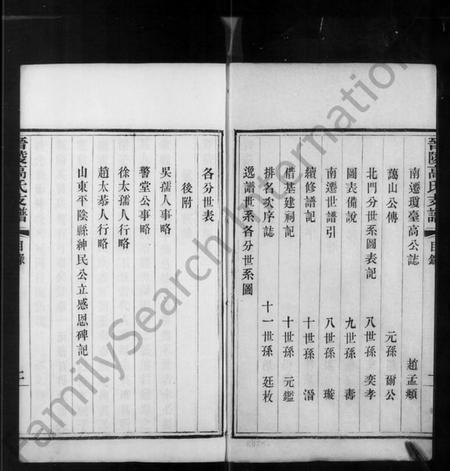 晉陵高氏支譜 目錄 一
南遷瓊臺高公誌 趙孟頫
蕩山公傳 元孫 爾公
北門分世系圖表記 八世孫 奕孝
圖表備說 九世孫 壽
南遷世譜引 八世孫 璇
續修譜記 十世孫 潛
借基建祠記 十世孫 元鑑
排名次序誌 十一世孫 廷枚
逸譜世系各分世系圖
各分世表
後附
吳孺人事略
警堂公事略
徐太孺人行略
趙太恭人行略
山東平陰縣紳民公立感恩碑記
晉陵高氏支譜 目錄 二
FamilySearch International